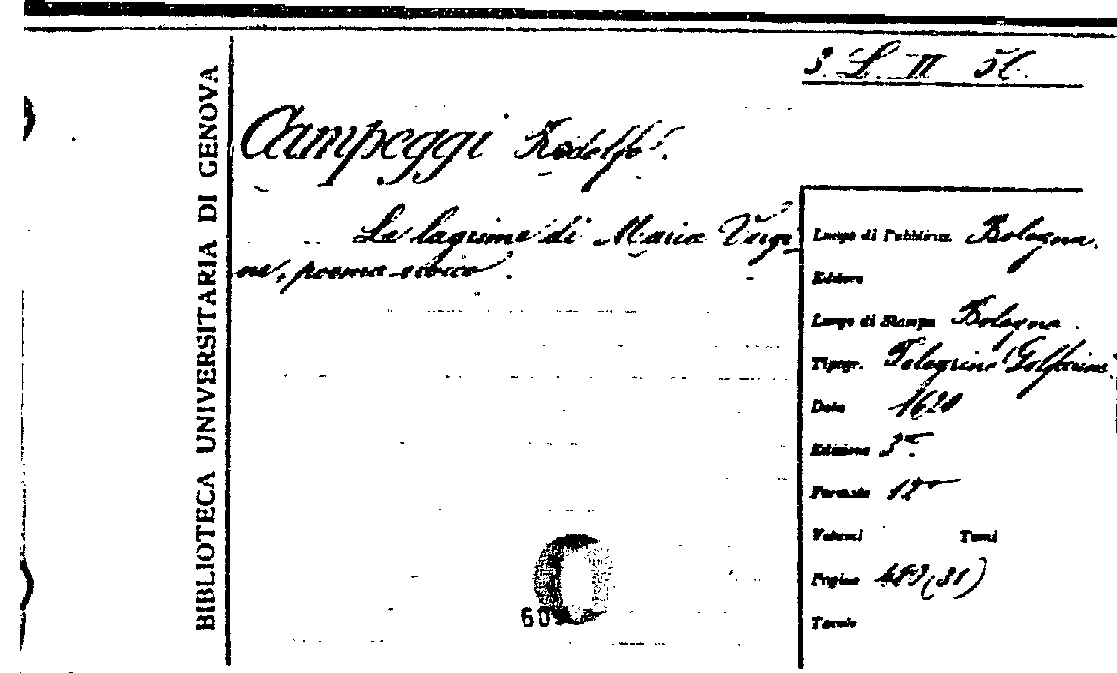 BIBLIOTECA UNIVERSITARIA DI GENOVA
3. L. II 51.
Campeggi Rodolfo.
Le lagrime di Maria Vergi-
ne, poema eroico.
Luogo di Pubblicaz. Bologna.
Editore
Luogo di Stampa Bologna.
Tipogr. Pelegrino Golfarini
Data 1620
Edizione 3ª
Formato 12°
Volumi Tomi
Pagine 489 (31)
Tavole